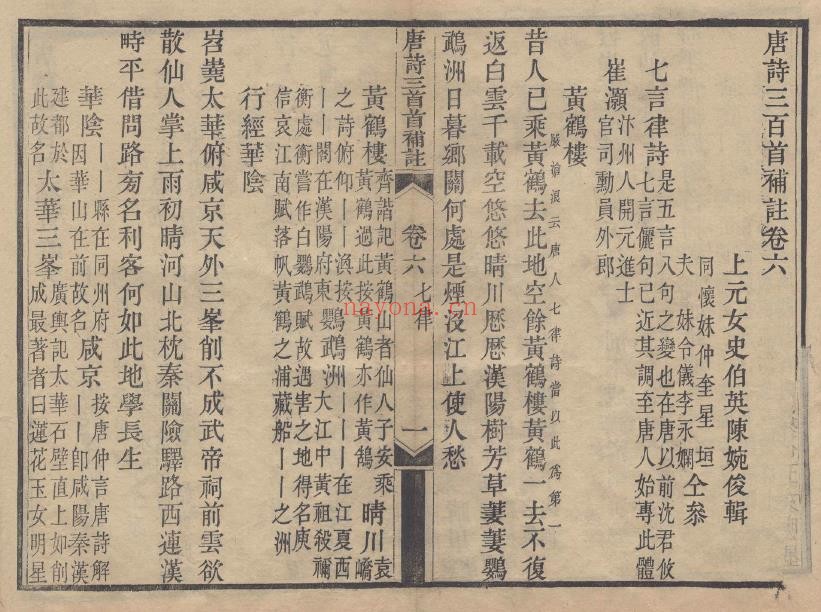 唐詩三百首補註卷六
上元女史伯英陳婉俊輯
同懷妹仲奎星垣
夫妹令儀李永嫻
仝叅
七言律詩
是五言八句之變也在唐以前沈君攸
七言儷句已近其調至唐人始專此體
崔灝
汴州人開元進士
官司勳員外郎
黃鶴樓
嚴滄浪云唐人七律詩當以此為第一
昔人已乘黃鶴去此地空餘黃鶴樓黃鶴一去不復
返白雲千載空悠悠晴川歷歷漢陽樹芳草萋萋鸚
鵡洲日暮鄉關何處是煙波江上使人愁
唐詩三百首補註
卷六
七律
一
黃鶴樓
齊諧記黃鶴山者仙人子安乘
黃鶴過此按黃鶴亦作黃鵠
晴川
袁嶠
之詩俯仰丨丨渙按鸚鵡洲丨丨丨在江夏西
丨丨閣在漢陽府東鸚鵡洲大江中黃祖殺禰
衡處衡嘗作白鸚鵡賦故遇害之地得名庾
信哀江南賦落帆黃鶴之浦藏船丨丨之洲
行經華陰
岧嶤太華俯咸京天外三峯削不成武帝祠前雲欲
散仙人掌上雨初晴河山北枕秦關險驛路西連漢
時平借問路旁名利客何如此地學長生
華陰
丨丨縣在同州府
因華山在前故名
咸京
按唐仲言唐詩解
丨丨卽咸陽秦漢
建都於
此故名
太華三峯
廣輿記太華石壁直上如削
成最著者曰蓮花玉女明星
nayona.cn